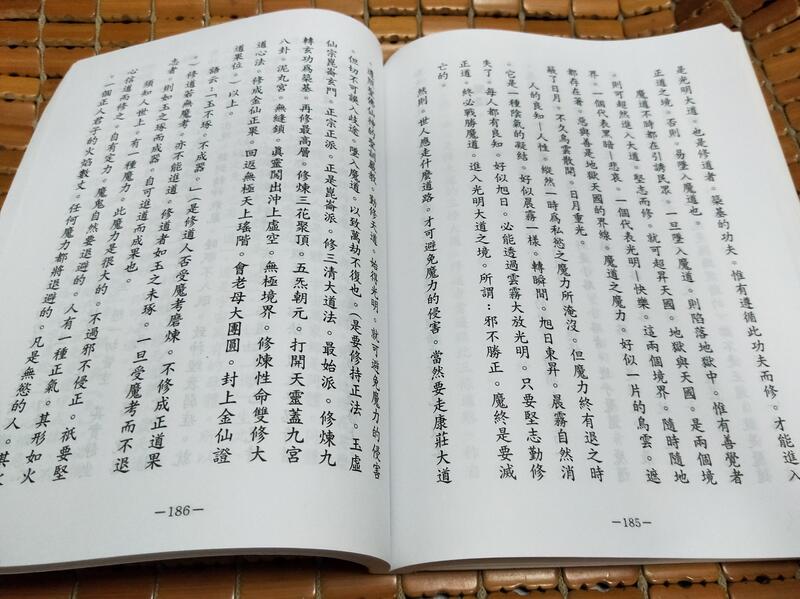 是光明大道。也是修道者。築基的功夫。惟有遵循此功夫而修。才能進入
正道之境。否則。易墜入魔道也。一旦墜入魔道。則陷落地獄中。惟有善覺者
則可超然進入大道。堅志而修。就可超昇天國。地獄與天國。是兩個境
魔道不時都在引誘民眾。
界。一個代表黑暗—悲哀。一個代表光明—快樂。這兩個境界。隨時隨地
都存在著。惡與善是地獄天國的界線。魔道之魔力。好似一片的烏雲。遮
蔽了日月。不久烏雲散開。日月重光。
人的良知—人性。縱然一時為私慾之魔力所淹沒。但魔力終有退之時
。它是一種陰氣的凝結。好似晨霧一樣。轉瞬間。旭日東昇。晨霧自然消
失了。每人都有良知。好似旭日。必能透過雲霧大放光明。只要堅志勤修
正道。終必戰勝魔道。進入光明大道之境。所謂：邪不勝正。魔終是要滅
亡的。
然則。世人應走什麼道路。才可避免魔力的侵害。當然要走康莊大道
勤修大道。始得光明。就可避免魔力的侵害
。但切不可誤入歧途。墜入魔道。以致萬劫不復也。（是要修持正法。玉虛
仙宗崑崙玄門。正宗正派。正是崑崙派。修三清大道法。最始派。修煉九
轉玄功為築基。再修最高層。修煉三花聚頂。五炁朝元。打開天靈蓋九宮
八卦。泥丸宮。無縫鎖。真靈闖出沖上虛空。無極境界。修煉性命雙修大
道心法。修成金仙正果。回返無極天上瑤階。會老母大團圓。封上金仙證
道果位。）以上。
語云：「玉不琢。不成器。」（是修道人否受魔考磨煉。不修成正道果
。）修道若無魔考。亦不能進道。修道者如玉之未琢。一旦受魔考而不退
志者。則如玉之琢而成器。自可進道而成果也。
須知人世上。有一種魔力。此魔力是很大的。不過邪不侵正。祇要堅
心信道而修之。自有定力。魔鬼自然要退避的。人有一種正氣。其形如火
。一個正人君子的火焰數丈。任何魔力都將退避的。凡是無慾的人。其
—186—
—185—